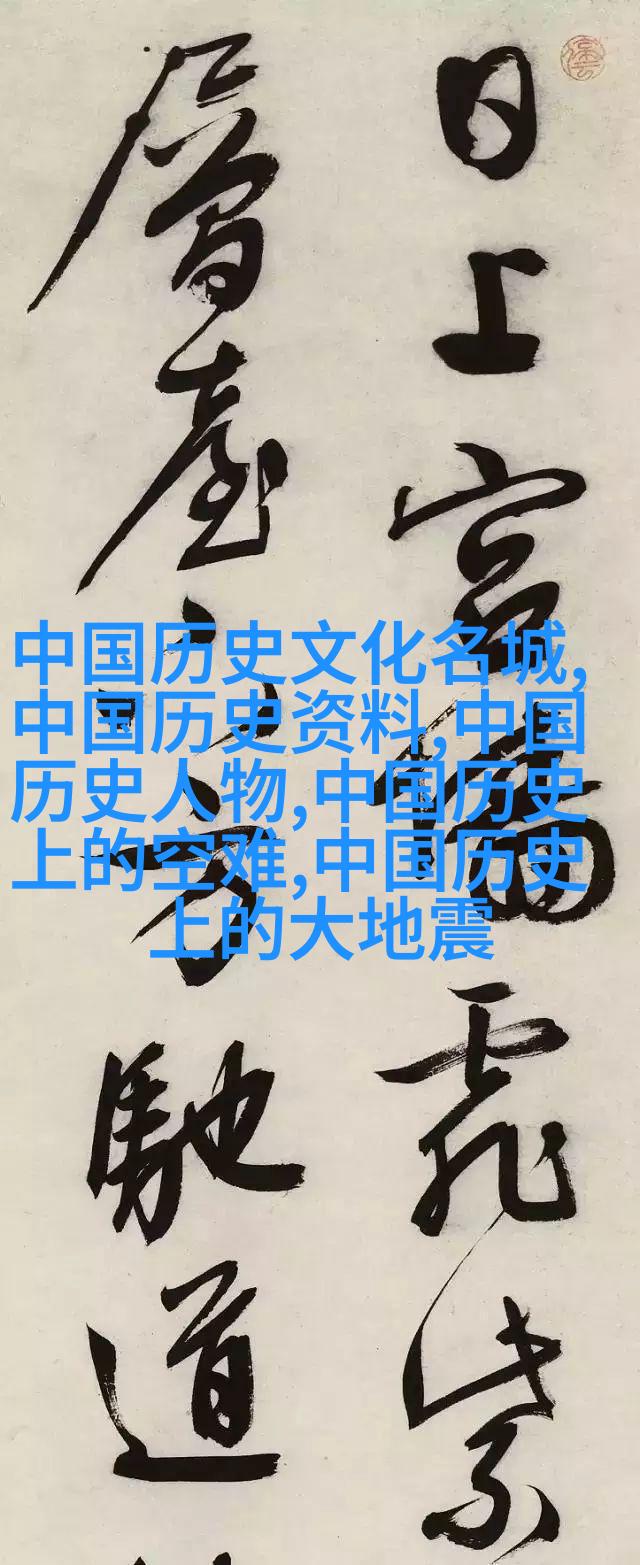 日上宮墻霏紫
層臺下方馳道
中国历史文化名城,
中国历史资料,中国
历史人物,中国历史
上的空难,中国历史
上的大地震